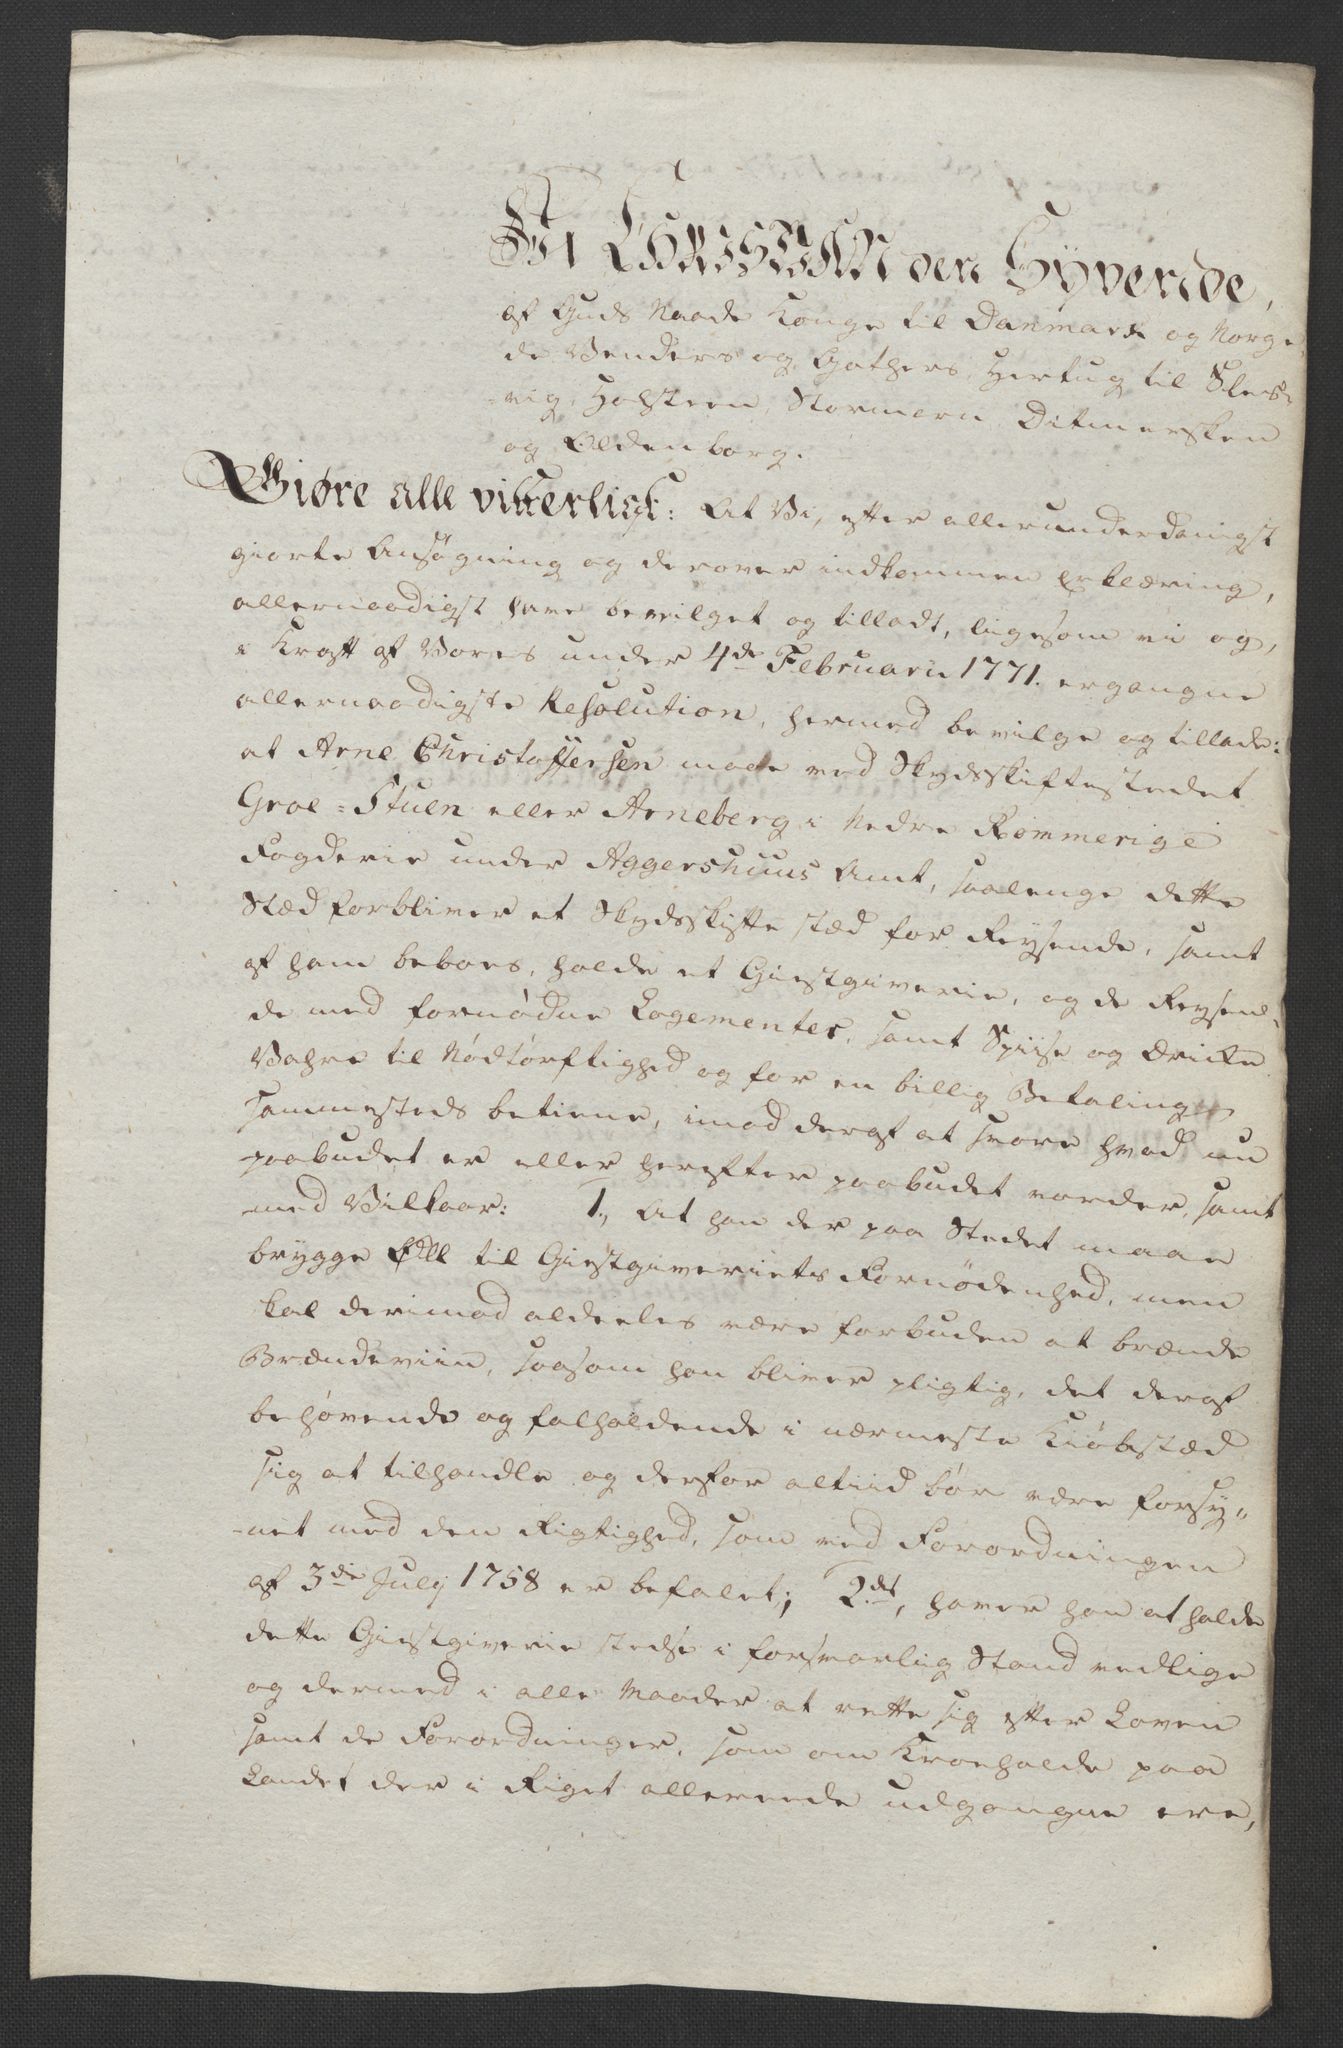 Vi CHRISTIAN den Syvende,
af Guds Naade Konge til Danmark og Norge,
de Venders og Gothers, Hertug til Sles-
-vig, Holsteen, Stormarn, Ditmersken
og Oldenborg.
Giøre alle vitterligt: At Vi, efter allerunderdanigst
giorte Ansøgning og derover indkommen Erklæring,
allernaadigst have bevilget og tilladt, ligesom vi og,
i Kraft af Vores under 4de Februarii 1771. ergangne
allernaadigste Resolution, hermed bevilge og tillade:
at Arne Christoffersen maae ved Skydsskiftestedet
Groe-Stuen eller Arneberg i Nedre Rommerige
Fogderie under Aggershuus Amt, saalenge dette
Stæd forbliver et Skydsskifte stæd for Reysende, samt
af ham beboes, holde et Giestgiverie, og de Reysen-
de med fornødne Logementer, samt Spiise og Drikke
Vahre til Nødtørftighed og for en billig Betaling
sammesteds betiene, imod deraf at svare hvad nu
paabudet er eller herefter paabudet vorder, samt
med Vilkaar: 1., At han der paa Stedet maae
brygge Øll til Giestgiveriets Fornødenhed, men
skal derimod aldeeles være forbuden at brænde
Brændeviin, saasom han bliver pligtig, det deraf
behøvende og falholdende i nærmeste Kiøbstæd
sig at tilhandle og derfor altiid bør være forsy„
-net med den Rigtighed, som ved Forordningen
af 3die Julij 1758 er befalet; 2det, haver han at holde
dette Giestgiverie stedse i forsvarlig Stand vedlige
og dermed i alle Maader at rette sig efter Loven
samt de Forordninger, som om Kroehold paa
Landet der i Riget allerede udgangne ere,